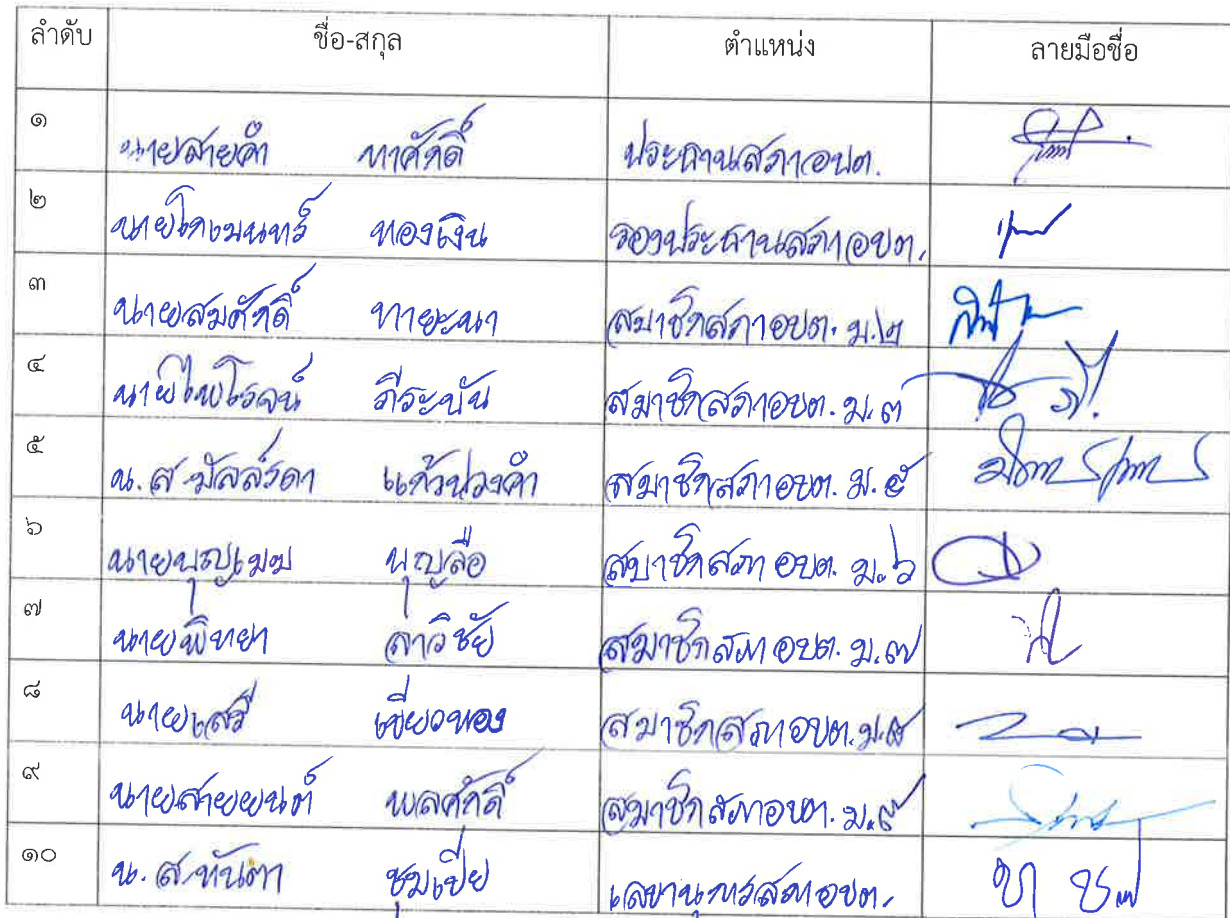 ลำดับ ชื่อ-สกุล ตำแหน่ง ลายมือชื่อ
๑ นายสายคำ ทาศักดิ์ ประธานสภาอบต.
๒ นายโกเมนทร์ ทองเงิน รองประธานสภาอบต.
๓ นายสมศักดิ์ ทายะนา สมาชิกสภาอบต. ม.๒
๔ นายไพโรจน์ ภีระบัน สมาชิกสภาอบต. ม.๓
๕ น.ส. แก้วปวงคำ สมาชิกสภาอบต. ม.๕
๖ นายบุญเมฆ บุญลือ สมาชิกสภา อบต. ม.๖
๗ นายพิทยา ลาวิชัย สมาชิกสภา อบต. ม.๗
๘ นายเสรี เขียวทอง สมาชิกสภาอบต. ม.๘
๙ นายสายยนต์ พลศักดิ์ สมาชิกสภาอบต. ม.๙
๑๐ น.ส.ทันตา ชุมเปีย เลขานุการสภาอบต.